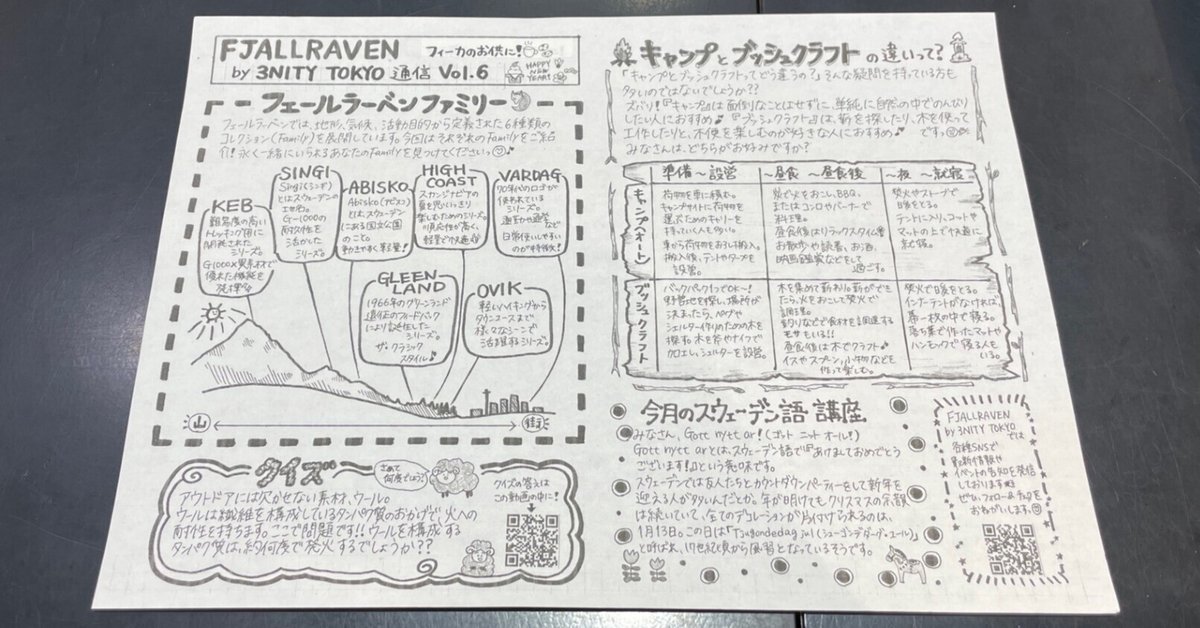 FJALLRAVEN フィーカのお供に!
by 3NITY TOKYO 通信 Vol.6
HAPPY NEW YEAR!
フェールラーベンファミリー
フェールラーベンでは、地形、気候、活動目的から定義された6種類の
コレクション(Family)を展開しています。今回はそれぞれのFamilyをご紹
介!永く一緒にいられるあなたのFamilyを見つけてくださいっ♪
KEB
難易度の高い
トレッキング用に
開発された
シリーズ。
G1000×異素材で
優れた機能を
発揮
SINGI
Singi(シンギ)
とはスウェーデン
の土地名。
G-1000の
耐久性を
活かした
シリーズ。
ABISKO
Abisko(アビスコ)
とは、スウェーデン
にある国立公園
のこと。
動きやすく軽量!
HIGH
COAST
スカンジナビアの
夏を思いっきり
楽しむためのシリーズ。
汎用性が高く、
軽量で快適
VARDAG
70年代のロゴが
使われている
シリーズ。
通勤や通学など
日常使いしやすい
のが特徴!
GLEEN
LAND
1966年のグリーンランド
遠征のフィードバック
により誕生した
シリーズ。
ザ・クラシック
スタイル♪
OVIK
軽いハイキングから
タウンユースまで
様々なシーンで
活躍するシリーズ。
山
街
クイズ
さあて
何度でしょう?
アウトドアには欠かせない素材、ウール。
ウールは繊維を構成しているタンパク質のおかげで、火への
耐性を持ちます。ここで問題です!!ウールを構成する
タンパク質は、約何度で発火するでしょうか??
クイズの答えは
この動画の中に!
キャンプとブッシュクラフトの違いって?
「キャンプとブッシュクラフトってどう違うの?」そんな疑問を持っている方も
多いのではないでしょうか??
ズバリ!『キャンプ』は面倒なことはせずに、単純に自然の中でのんびり
したい人におすすめ♪『ブッシュクラフト』は、薪を探したり、木を使って
工作したりと、不便を楽しむのが好きな人におすすめ♪です。
みなさんは、どちらがお好みですか?
準備~設営 ~昼食~昼食後 ~夜~就寝
キャンプ(オート)
荷物を車に積む。
キャンプサイトに荷物を
運ぶためのキャリーを
持っていく人も多い。
車から荷物をおろし搬入。
搬入後、テントやタープを
設営。
炭で火をおこし、BBQ、
またはコンロやバーナーで
料理。
昼食後はリラックスタイム
お散歩や読書、お酒、
映画鑑賞などをして
過ごす。
焚火やストーブで
暖をとる。
テントに入り、コットや
マットの上で快適に
就寝。
ブッシュクラフト
バックパック1つでOK~!
野営地を探し、場所が
決まったら、ペグや
シェルター作りのための木を
探す。木を斧やナイフで
加工し、シェルターを設営。
木を集めて薪わり。薪ができ
たら、火をおこして焚火で
調理。
釣りなどで食材を調達する
モサもいる!!
昼食後は木でクラフト♪
イスやスプーン、小物などを
作って楽しむ。
焚火で暖をとる。
インナーテントがなければ、
幕一枚の中で寝る。
落ち葉で作ったマットや
ハンモックで寝る人も
いる。
今月のスウェーデン語講座
みなさん、Gott nytt ar!(ゴット ニット オール!)
Gott nytt arとは、スウェーデン語で『あけましておめでとう
ございます!』という意味です。
スウェーデンでは友人たちとカウントダウンパーティーをして新年を
迎える人が多いんだとか。年が明けてもクリスマスの余韻
は続いていて、全てのデコレーションが片付けられるのは、
1月13日。この日は「Tjugondedag jul(シューゴンデダーグ・ユール)」
と呼ばれ、17世紀頃から風習となっているそうです。
FJALLRAVEN
by 3NITY TOKYOでは
各種SNSで
最新情報や
イベントの告知を発信
しております
ぜひ、フォロー&チェックを
おねがいします。